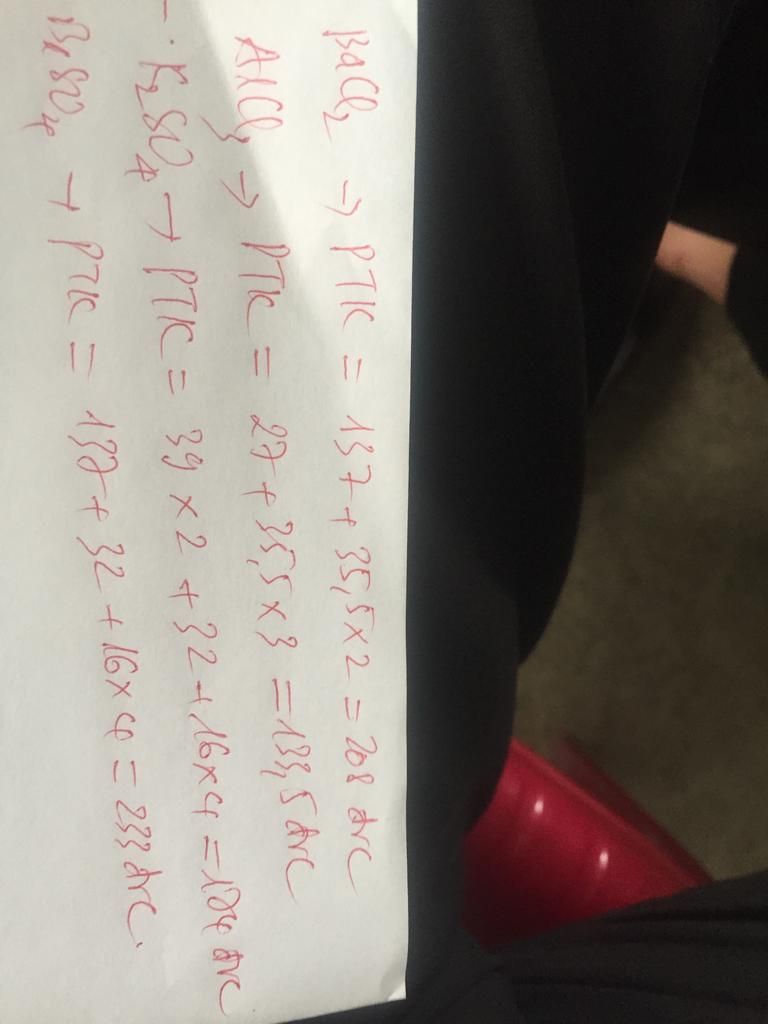 BaCl2 → PTK = 137 + 35,5 x 2 = 208 đvC
AlCl3 → PTK = 27 + 35,5 x 3 = 133,5 đvC
- K2SO4 → PTK = 39 x 2 + 32 + 16 x 4 = 174 đvC
BaSO4 → PTK = 137 + 32 + 16 x 4 = 233 đvC.